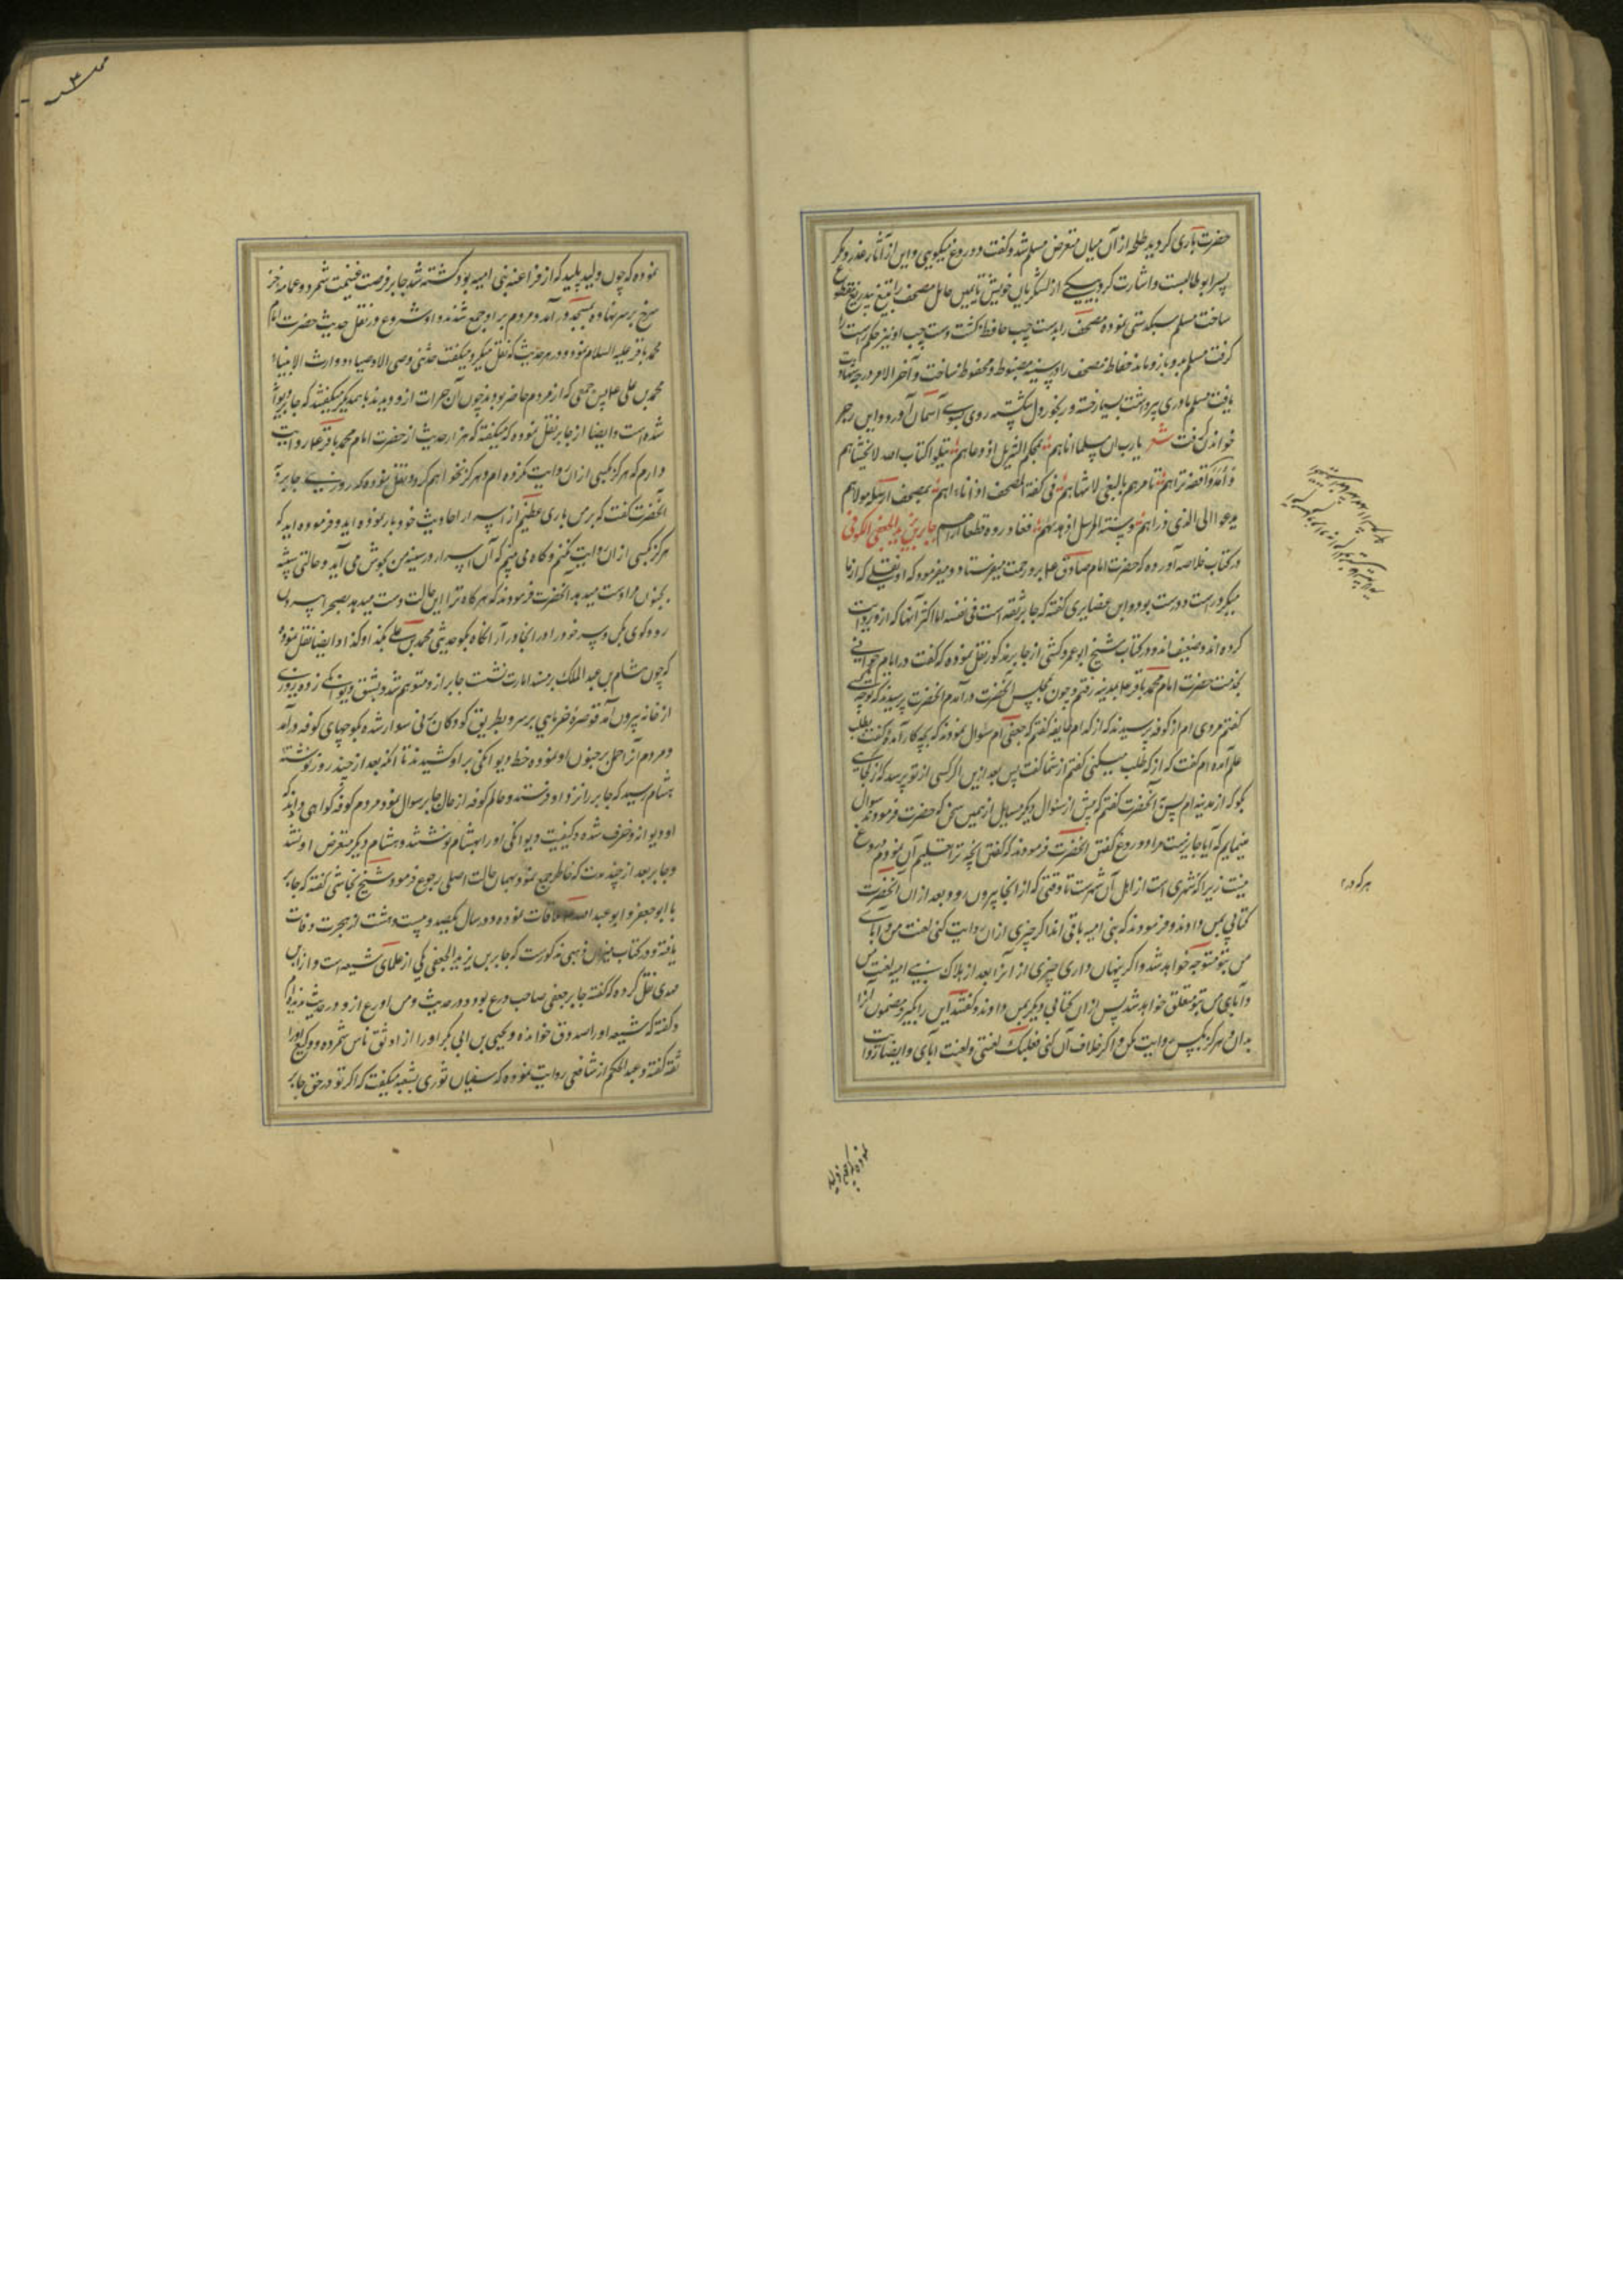 حضرت باری کردید طلحه از آن میان متعرض مسلم شد و گفت دروغ میگویی و این از آثار غدر و مکر
پسر ابو طالبست و اشارت کرد بیکی از لشکریان خویش تا یمین حامل مصحف را بتیغ بیدریغ قطع
ساخت مسلم سبکدستی نموده مصحف را بدست چپ حافظ گشت دست چپ او نیز حکم راست را
گرفت مسلم بدو بازو مانده حفاظه مصحف را در سینه مضبوط و محفوظ ساخت و آخر الامر درجه شهادت
یافت مسلم مادری پیر داشت بسیار خسته و رنجور دل شکسته روی بسوی آسمان آورد و این رجز
خواندن گرفت شعر یا رب ان مسلما اتاهم بمحکم التنزیل اذ دعاهم یتلو کتاب الله لا یخشاهم
یدعو الی الذی
جابر بن یزید الجعفی الکوفی
در کتاب خلاصه آورده که حضرت امام صادق ع برو رحمت میفرستاد و میفرمود که او نقلی که از ما
میکرد راست و درست بود و ابن غضایری گفته که جابر ثقه است فی نفسه اما اکثر آنها که ازو روایت
کرده اند ضعیف اند و در کتاب شیخ ابو عمرو کشی از جابر مذکور نقل نموده که گفت در ایام جوانی
بخدمت حضرت امام محمد باقر ع بمدینه رفتم و چون بمجلس آنحضرت در آمدم آنحضرت پرسیدند که تو چه کسی
گفتم مردی ام از کوفه پرسیدند که از کدام طایفه گفتم که جعفی ام سئوال نمودند که بچه کار آمده گفت بطلب
علم آمده ام گفت که از که طلب میکنی گفتم از شما گفت پس بعد ازین اگر کسی از تو پرسد که از کجایی
بگو که از مدینه ام پس به آنحضرت گفتم که پیش از سئوال دیگر مسایل از همین سخن که حضرت فرمودند سوال
مینمایم که آیا جایزست مرا دروغ گفتن آنحضرت فرمودند که گفتن آنچه ترا تعلیم آن نمودم دروغ
نیست زیرا که شهری است از اهل آن شهرست تا وقتی که از آنجا بیرون رود بعد از آن آنحضرت
کتابی بمن دادند و فرمودند که بنی امیه باقی اند اگر چیزی از آن روایت کنی لعنت من و آبای
من بتو متوجه خواهد شد و اگر پنهان داری چیزی از آنرا بعد از هلاک بنی امیه لعنت من
و آبای من بتو متعلق خواهد شد پس از آن کتابی دیگر بمن دادند و گفتند این را بگیر و مضمون آنرا
بدان و هرگز بکس روایت مکن و اگر خلاف آن کنی فعلیک لعنتی و لعنت آبای و ایضا روایت
نموده که چون ولید
نموده که چون ولید پلید که از فراعنه بنی امیه بود کشته شد جابر فرصت غنیمت شمرد و عمامه خز
سرخ بر سر نهاده بمسجد در آمد و مردم بر او جمع شدند و او شروع در نقل حدیث حضرت امام
محمد باقر علیه السلام نمود و در هر حدیث که نقل میکرد میگفت حدثنی وصی الاوصیاء و وارث الانبیاء
محمد بن علی ع پس جمعی که از مردم حاضر بودند چون آن جرات ازو دیدند با همدیگر میگفتند که جابر دیوانه
شده است و ایضا از جابر نقل نموده که میگفته که هزار حدیث از حضرت امام محمد باقر ع روایت
دارم که هرگز بکسی از آن روایت نکرده ام و هرگز نخواهم کرد و نقل نموده که روزی جابر به
آنحضرت گفت که بر من باری عظیم از اسرار احادیث خود بار نموده اید و فرموده اید که
هرگز بکسی از آن روایت نکنم و گاه می بینم که آن اسرار در سینه من بجوش می آید و حالتی شبیه
بجنون مرا دست میدهد آنحضرت فرمودند که هرگاه ترا این حالت دست میدهد بصحرا بیرون
رو و گوی بکن و سر خود را در آنجا در آر آنگاه بگو حدثنی محمد بن علی بکذا و کذا و ایضا نقل نموده
که چون هشام بن عبد الملک بر مسند امارت نشست جابر ازو متوهم شد و بشق دیوانگی زده روزی
از خانه بیرون آمد قوصره خرمایی بر سر و بطریق کودکان بر نی سوار شده بکوچهای کوفه در آمد
و مردم آنرا حمل بر جنون او نموده خط دیوانگی بر او کشیدند تا آنکه بعد از چند روز نوشته
هشام رسید که جابر را نزد او فرستند و حاکم کوفه از حال جابر سوال نمود مردم کوفه گواهی دادند که
او دیوانه و خرف شده و کیفیت دیوانگی او را بهشام نوشتند و هشام دیگر متعرض او نشد
و جابر بعد از چند مدت که خاطر جمع نمود بهمان حالت اصلی رجوع فرمود و شیخ نجاشی گفته که جابر
با ابو جعفر و ابو عبد الله ع ملاقات نموده و در سال یکصد و بیست و هشت از هجرت وفات
یافته و در کتاب میزان ذهبی مذکورست که جابر بن یزید الجعفی یکی از علمای شیعه است و از ابن
مهدی نقل کرده که گفته جابر جعفی صاحب ورع بود در حدیث و من اورع ازو در حدیث ندیده ام
و گفته که شعبه او را صدوق خوانده و یحیی بن ابی بکر او را از اوثق ناس شمرده و وکیع او را
ثقه گفته و عبد الحکم از شافعی روایت نموده که سفیان ثوری بشعبه میگفت که اگر تو در حق جابر